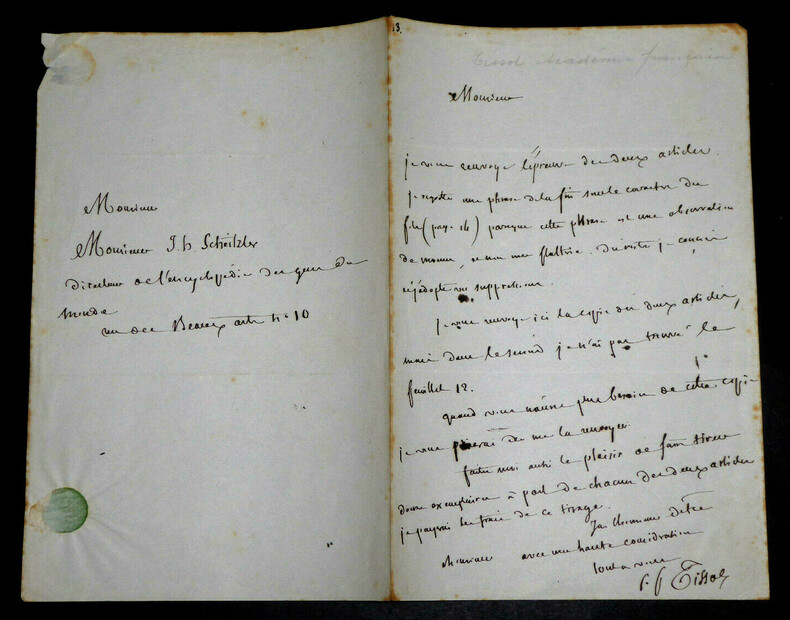 Monsieur
Monsieur J. h Schnitzler
Directeur de l'encyclopédie des gens du
monde
rue des Beaux arts n° 10
13.
Tissot Académie française
Monsieur
je vous renvoye l'épreuve des deux articles.
je rejette une phrase de la fin sur le caractère du
(page 14) parceque cette phrase est une observation
de moeurs, et non une flatterie. Du reste je
et j'adopte vos suppressions.
Je vous renvoye ici la copie des deux articles,
mais dans le second je n'ai pas trouvé le
feuillet 12.
quand vous n'aurez plus besoin de cette copie
je vous prierai de me la renvoyer.
faites moi aussi le plaisir de faire tirer
douze exemplaires à part de chacun des deux articles
je payerai les frais de ce tirage.
J'ai l'honneur d'être
Monsieur avec une haute considération
tout à vous
p. f Tissot